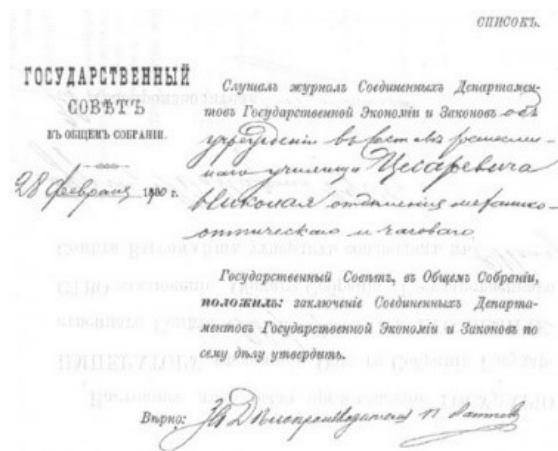 СПИСОКЪ.
ГОСУДАРСТВЕННЫЙ
СОВѢТЪ
ВЪ ОБЩЕМЪ СОБРАНІИ.
28 февраля 1900 г.
Слушалъ журналъ Соединенныхъ Департамен-
товъ Государственной Экономіи и Законовъ объ
учрежденіи въ составѣ ремеслен-
наго училища Цесаревича
Николая отдѣленія механико-
оптическаго и часоваго
Государственный Совѣтъ, въ Общемъ Собраніи,
положилъ: заключеніе Соединенныхъ Департа-
ментовъ Государственной Экономіи и Законовъ по
сему дѣлу утвердить.
Вѣрно: За Дѣлопроизводителя